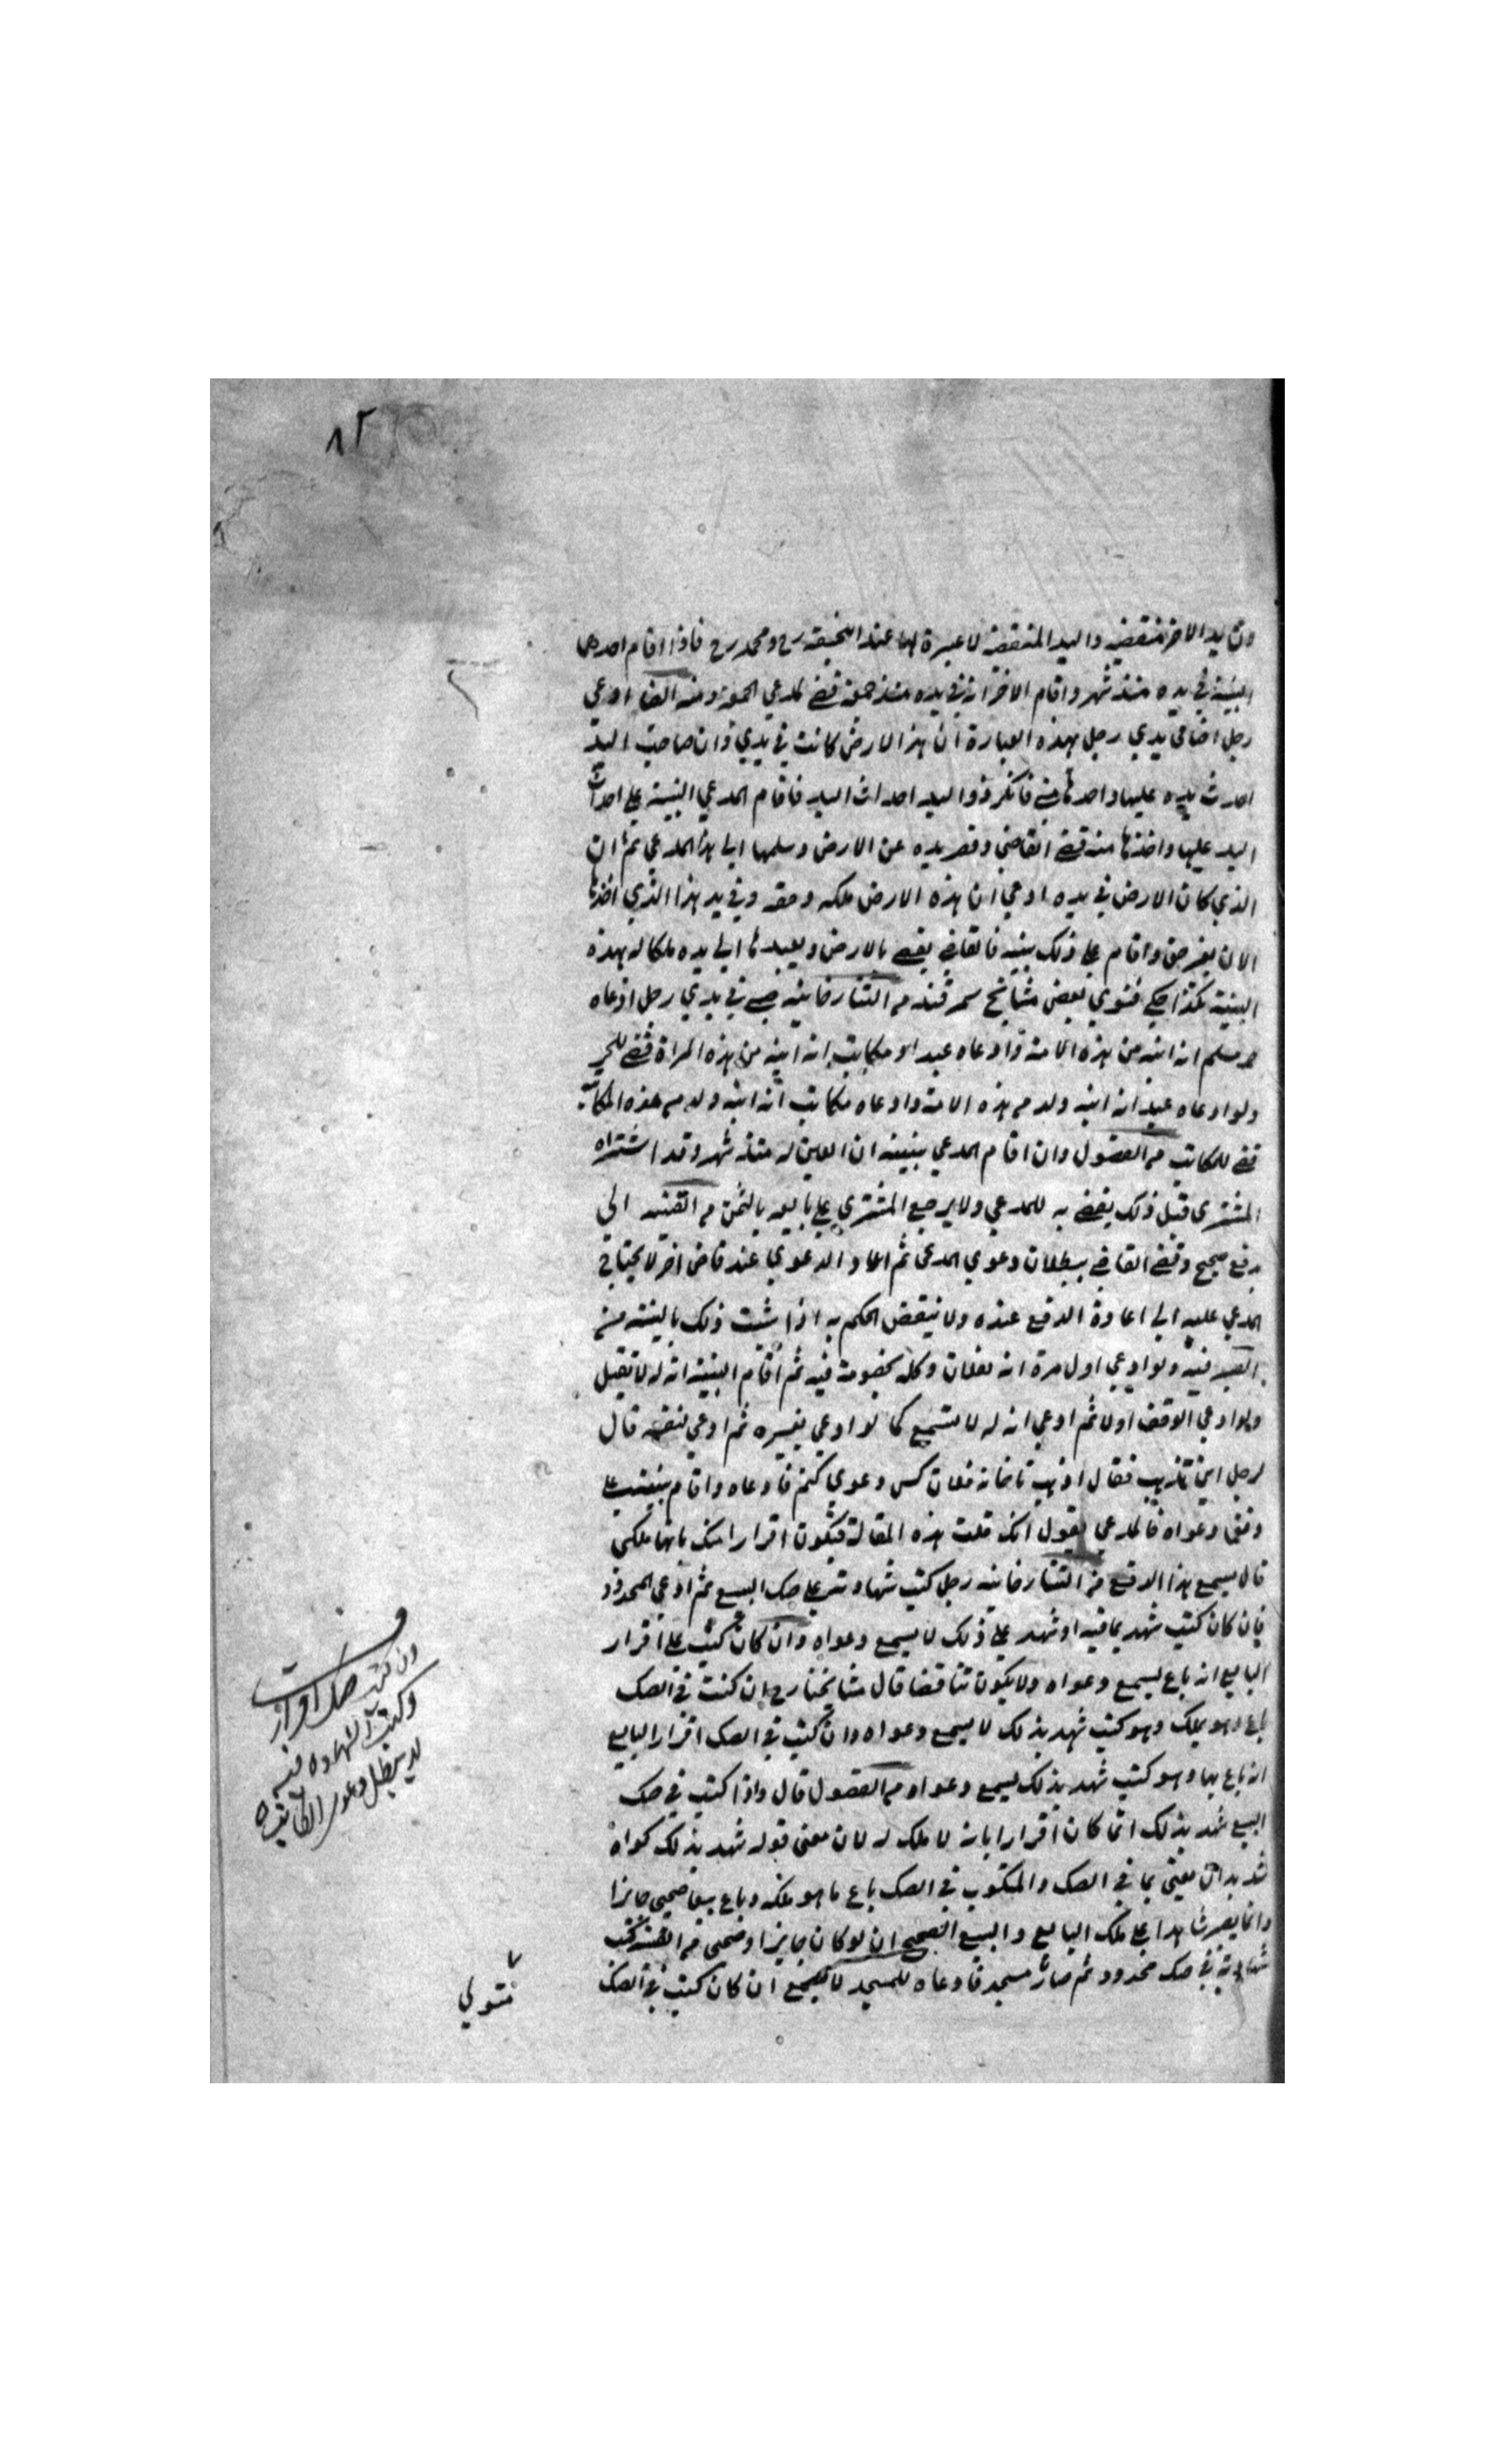 ٨٢
وان يد الاخر منقضية واليد المنقضية لا عبرة لها عند ابيحنيفة رح ومحمد رح فاذا اقام احدهما
البينة في يده منذ شهر واقام الاخر انه في يده منذ جمعة قضى لمدعي الجمعة ومنه ايضا ادعى
رجل ارضا في يدي رجل بهذه العبارة ان هذا الارض كانت في يدي وان صاحب اليد
احدث يده عليها واخذها مني فانكر ذو اليد احداث اليد فاقام المدعي البينة على احداث
اليد عليها واخذها منه قضى القاضي وقصر يده عن الارض وسلمها الى هذا المدعي ثم ان
الذي كان الارض في يده ادعى ان هذه الارض ملكه وحقه وفي يد هذا الذي اخذها
الان بغير حق واقام على ذلك بينة فالقاضي يقضي بالارض ويعيدها الى يده ملكا له بهذه
البينة هكذا حكي فتوى بعض مشايخ سمرقند من التتارخانية صبي في يدي رجل ادعاه
حر مسلم انه ابنه من هذه الامة وادعاه عبد او مكاتب انه ابنه من هذه المراة قضى للحر
ولو ادعاه عبد انه ابنه ولد من هذه الامة وادعاه مكاتب انه ابنه ولد من هذه المكاتبة
قضى للمكاتب من الفصول وان اقام المدعي بينة ان العين له منذ شهر وقد اشتراه
المشتري قبل ذلك يقضى به للمدعي ولا يرجع المشتري على بايعه بالثمن من القنية اتى
بدفع صحيح وقضى القاضي ببطلان دعوى المدعي ثم اعاد الدعوى عند قاض اخر لا يحتاج
المدعي عليه الى اعادة الدفع عنده ولا ينقض الحكم به اذا ثبت ذلك بالبينة من
الصيرفية ولو ادعى اول مرة انه لفلان وكله بخصومة فيه ثم اقام البينة انه له لا تقبل
ولو ادعى الوقف اولا ثم ادعى انه له لا تسمع كما لو ادعى لغيره ثم ادعى لنفسه قال
لرجل اين تذهب فقال اذهب تا خانه فلان كس دعوى كنم فادعاه واقام بينة على
وفق دعواه فالمدعي يقول انك قلت هذه المقالة فيكون اقرارا منك بانها ملكي
قال يسمع هذا الدفع من التتارخانية رجل كتب شهادته على صك البيع ثم ادعى المحدود
فان كان كتب شهد بما فيه او شهد على ذلك لا يسمع دعواه وان كان كتب على اقرار
البايع انه باع يسمع دعواه ولا يكون تناقضا قال مشايخنا رح ان كنت في الصك
باع وهو يملك وهو كتب شهد بذلك لا يسمع دعواه وان كتب في الصك اقرار البايع
انه باع بها وهو كتب شهد بذلك يسمع دعواه من الفصول قال واذا كتب في صك
البيع شهد بذلك انما كان اقرارا بانه لا ملك له لان معنى قوله شهد بذلك كواه
شد بدان معنى بما في الصك والمكتوب في الصك باع ما هو ملكه وباع بيعا صحيحا جايزا
وانما يصير شاهدا على ملك البايع والبيع الصحيح ان لو كان جايزا وصحيحا من القنية كتب
شهادته في صك محدود ثم صار مسجد فادعاه للمسجد لا يسمع ان كان كتب في الصك
وان كتب
صك اقرار
وكتب الشهادة فيه
لا يبطل دعوى
متولي